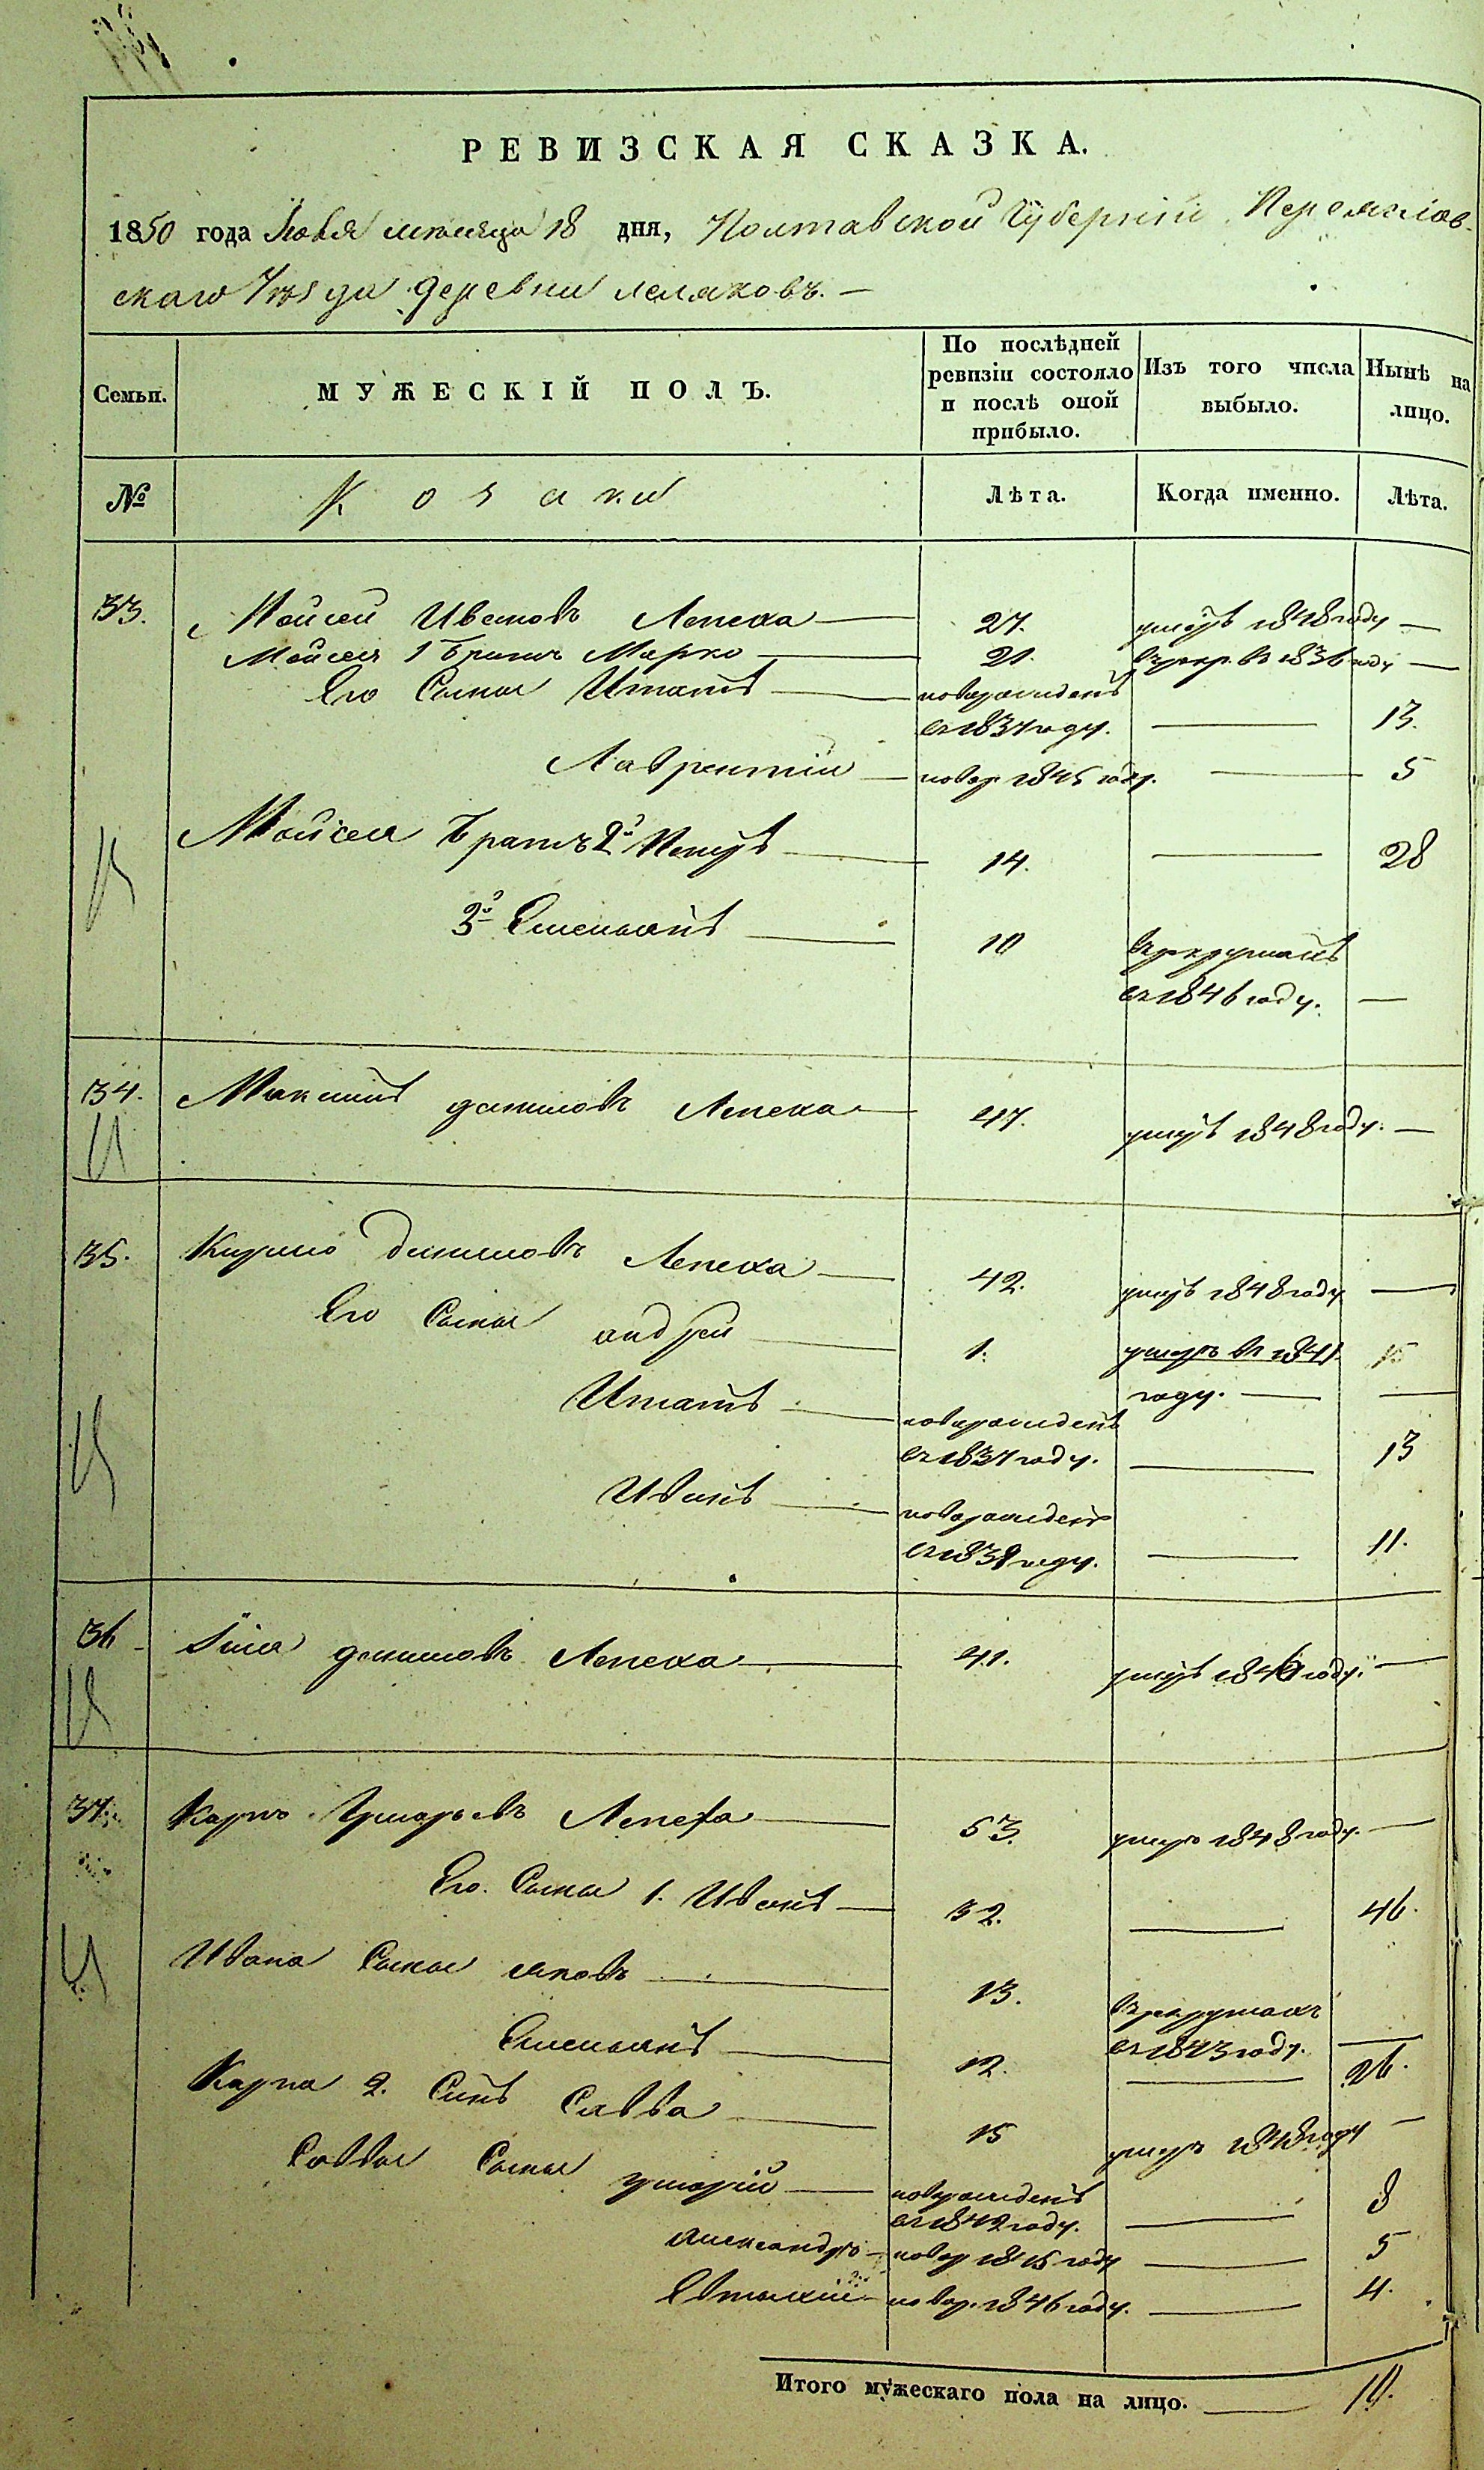 РЕВИЗСКАЯ СКАЗКА.
1850 года Ноября месяца 18 дня, Полтавской Губернии Переяслов-
скаго Уѣзда деревни Леляковъ. —
Семьи. МУЖЕСКІЙ ПОЛЪ. По послѣдней ревизіи состояло и послѣ оной прибыло. Изъ того числа выбыло. Нынѣ на лицо.
№ Козаки Лѣта. Когда именно. Лѣта.
33. Мойсей Ивановъ Лепеха — 27. умеръ 1848 году —
Мойсея 1 Братъ Марко — 21. в рекр. в 1836 году —
Его Сыны Игнатъ — новорожденъ
в 1837 году. — 13.
Лаврентий — новор 1845 году. — 5
Мойсея Братъ 2й Петръ — 14. — 28
3й Емельянъ — 10 в рекрутахъ
в 1846 году. —
34. Максимъ Даниловъ Лепеха — 47. умеръ 1848 году. —
35. Кирило Даниловъ Лепеха — 42. умеръ 1848 году —
Его Сыны андрей — 1. умеръ в 1841 15
году. — —
Игнатъ — новорожденъ
в 1837 году. — 13
Иванъ — новорожденъ
в 1839 году. — 11.
36 Даниловъ Лепеха — 41. умеръ году. —
37. Карпо Григорьевъ Лепеха — 53. умеръ 1848 году. —
Его Сыны 1. Иванъ — 32. — 46.
Ивана Сыны яковъ — 13. в рекрутахъ
в 1843 году. —
Емельянъ — 12. — 26.
Карпа 2. Сынъ Савва — 15 умеръ 1848 году —
Саввы Сыны григорій — новорожденъ
в 1842 году. — 8
александръ — новор 1845 году — 5
Евтихій — новор. 1846 году. — 4.
Итого мужескаго пола на лицо. — 10.